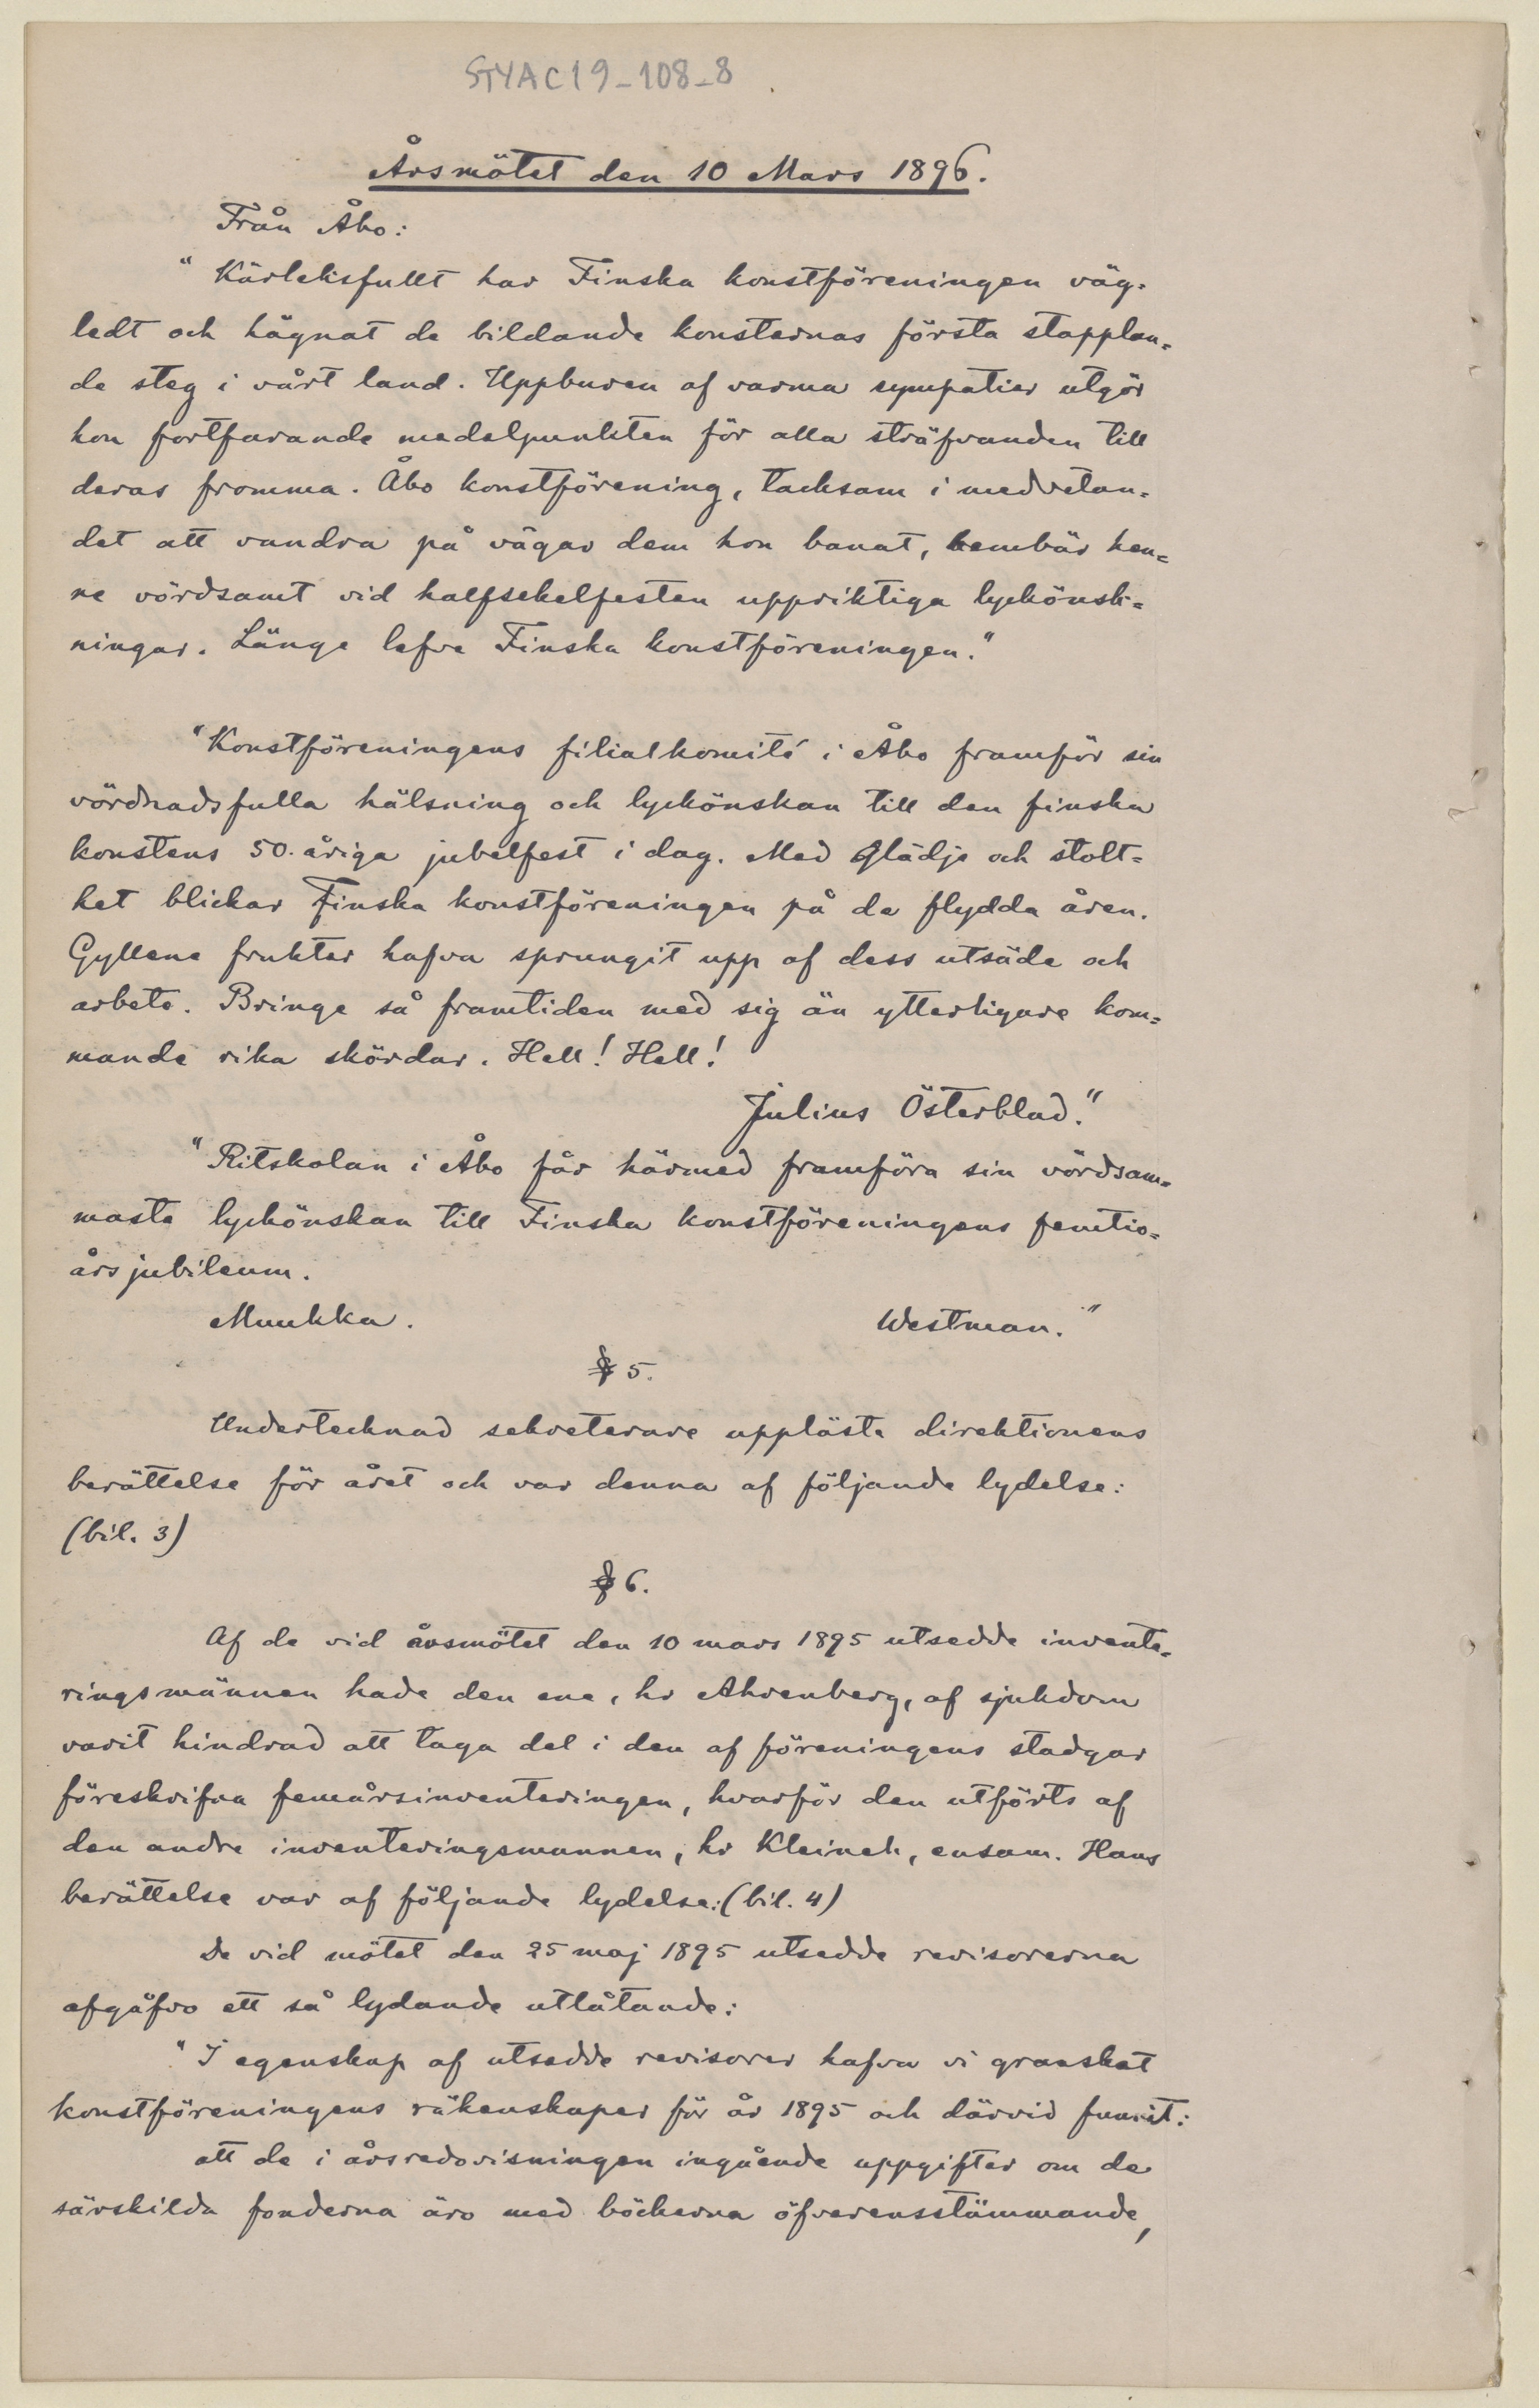 STYAC19-108-8
Årsmötet den 10 Mars 1896.
Från Åbo:
"Kärleksfullt har Finska konstföreningen väg-
ledt och hägnat de bildande konsternas första stapplan-
de steg i vårt land. Uppburen af varma sympatier utgör
hon fortfarande medelpunkten för alla sträfvanden till
deras fromma. Åbo konstförening, tacksam i medvetan-
det att vandra på vägar dem hon banat, hembär hen-
ne vördsamt vid halfsekelfesten uppriktiga lyckönsk-
ningar. Länge lefve Finska konstföreningen."
"Konstföreningens filialkomité i Åbo framför sin
vördnadsfulla hälsning och lyckönskan till den finska
konstens 50-åriga jubelfest i dag. Med glädje och stolt-
het blickar Finska konstföreningen på de flydda åren.
Gyllene frukter hafva sprungit upp af dess utsäde och
arbete. Bringe så framtiden med sig än ytterligare kom-
mande rika skördar. Hell! Hell!
Julius Österblad."
"Ritskolan i Åbo får härmed framföra sin vördsam-
maste lyckönskan till Finska konstföreningens femtio-
års jubileum.
Muukka. Westman."
§ 5.
Undertecknad sekreterare uppläste direktionens
berättelse för året och var denna af följande lydelse:
(bil. 3)
§ 6.
Af de vid årsmötet den 10 mars 1895 utsedde invente-
ringsmännen hade den ene, hr Ahrenberg, af sjukdom
varit hindrad att taga del i den af föreningens stadgar
föreskrifna femårsinventeringen, hvarför den utförts af
den andre inventeringsmannen, hr Kleineh, ensam. Hans
berättelse var af följande lydelse: (bil. 4)
De vid mötet den 25 maj 1895 utsedde revisorerna
afgåfvo ett så lydande utlåtande:
"I egenskap af utsedde revisorer hafva vi granskat
konstföreningens räkenskaper för år 1895 och därvid funnit:
att de i årsredovisningen ingående uppgifter om de
särskilda fonderna äro med böckerna öfverensstämmande,